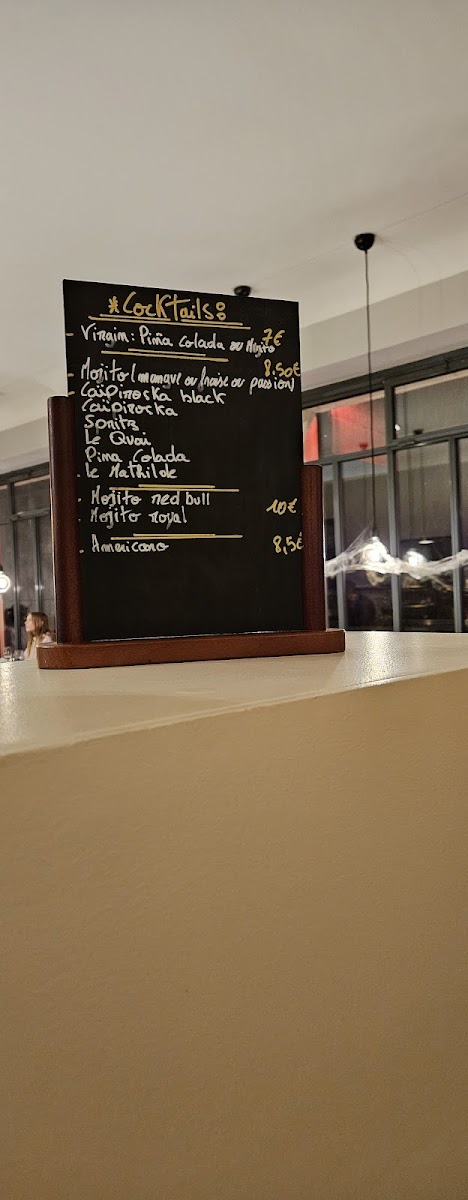 *Cocktails:
- Virgin: Piña Colada ou Mojito 7€
- Mojito (mangue ou fraise ou passion) 8.50€
- Caïpiroska black
Caïpiroska
Spritz
Le Quai
Pina Colada
- Le Mathilde
- Mojito red bull 10€
- Mojito royal
- Americano 8,5€